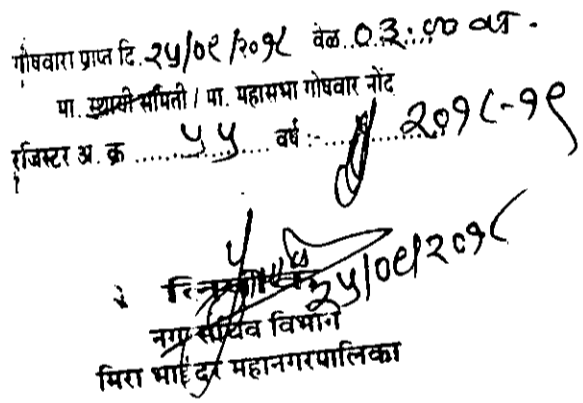 गोषवारा प्राप्त दि. २५/०९/२०१८ वेळ..०३:००वा.
मा. स्थायी समिती / मा. महासभा गोषवारा नोंद
रजिस्टर अ. क्र ......५५...... वर्ष :- ........२०१८-१९
२५/०९/२०१८
नगर सचिव विभाग
मिरा भाईंदर महानगरपालिका